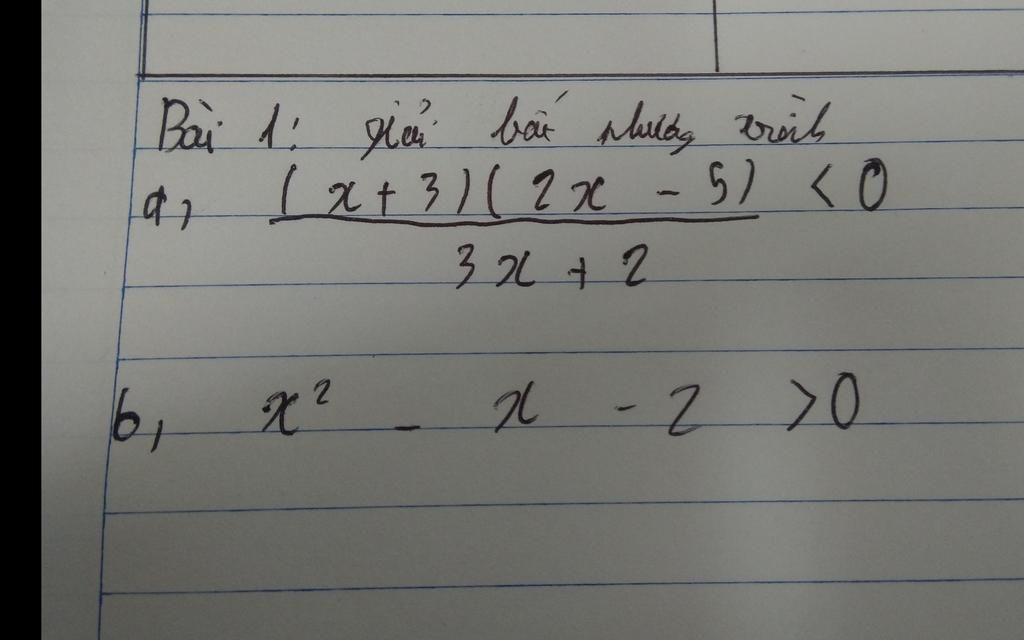 Bài 1: giải bất phương trình
a, (x+3)(2x - 5) < 0
3x + 2
b, x² - x - 2 >0